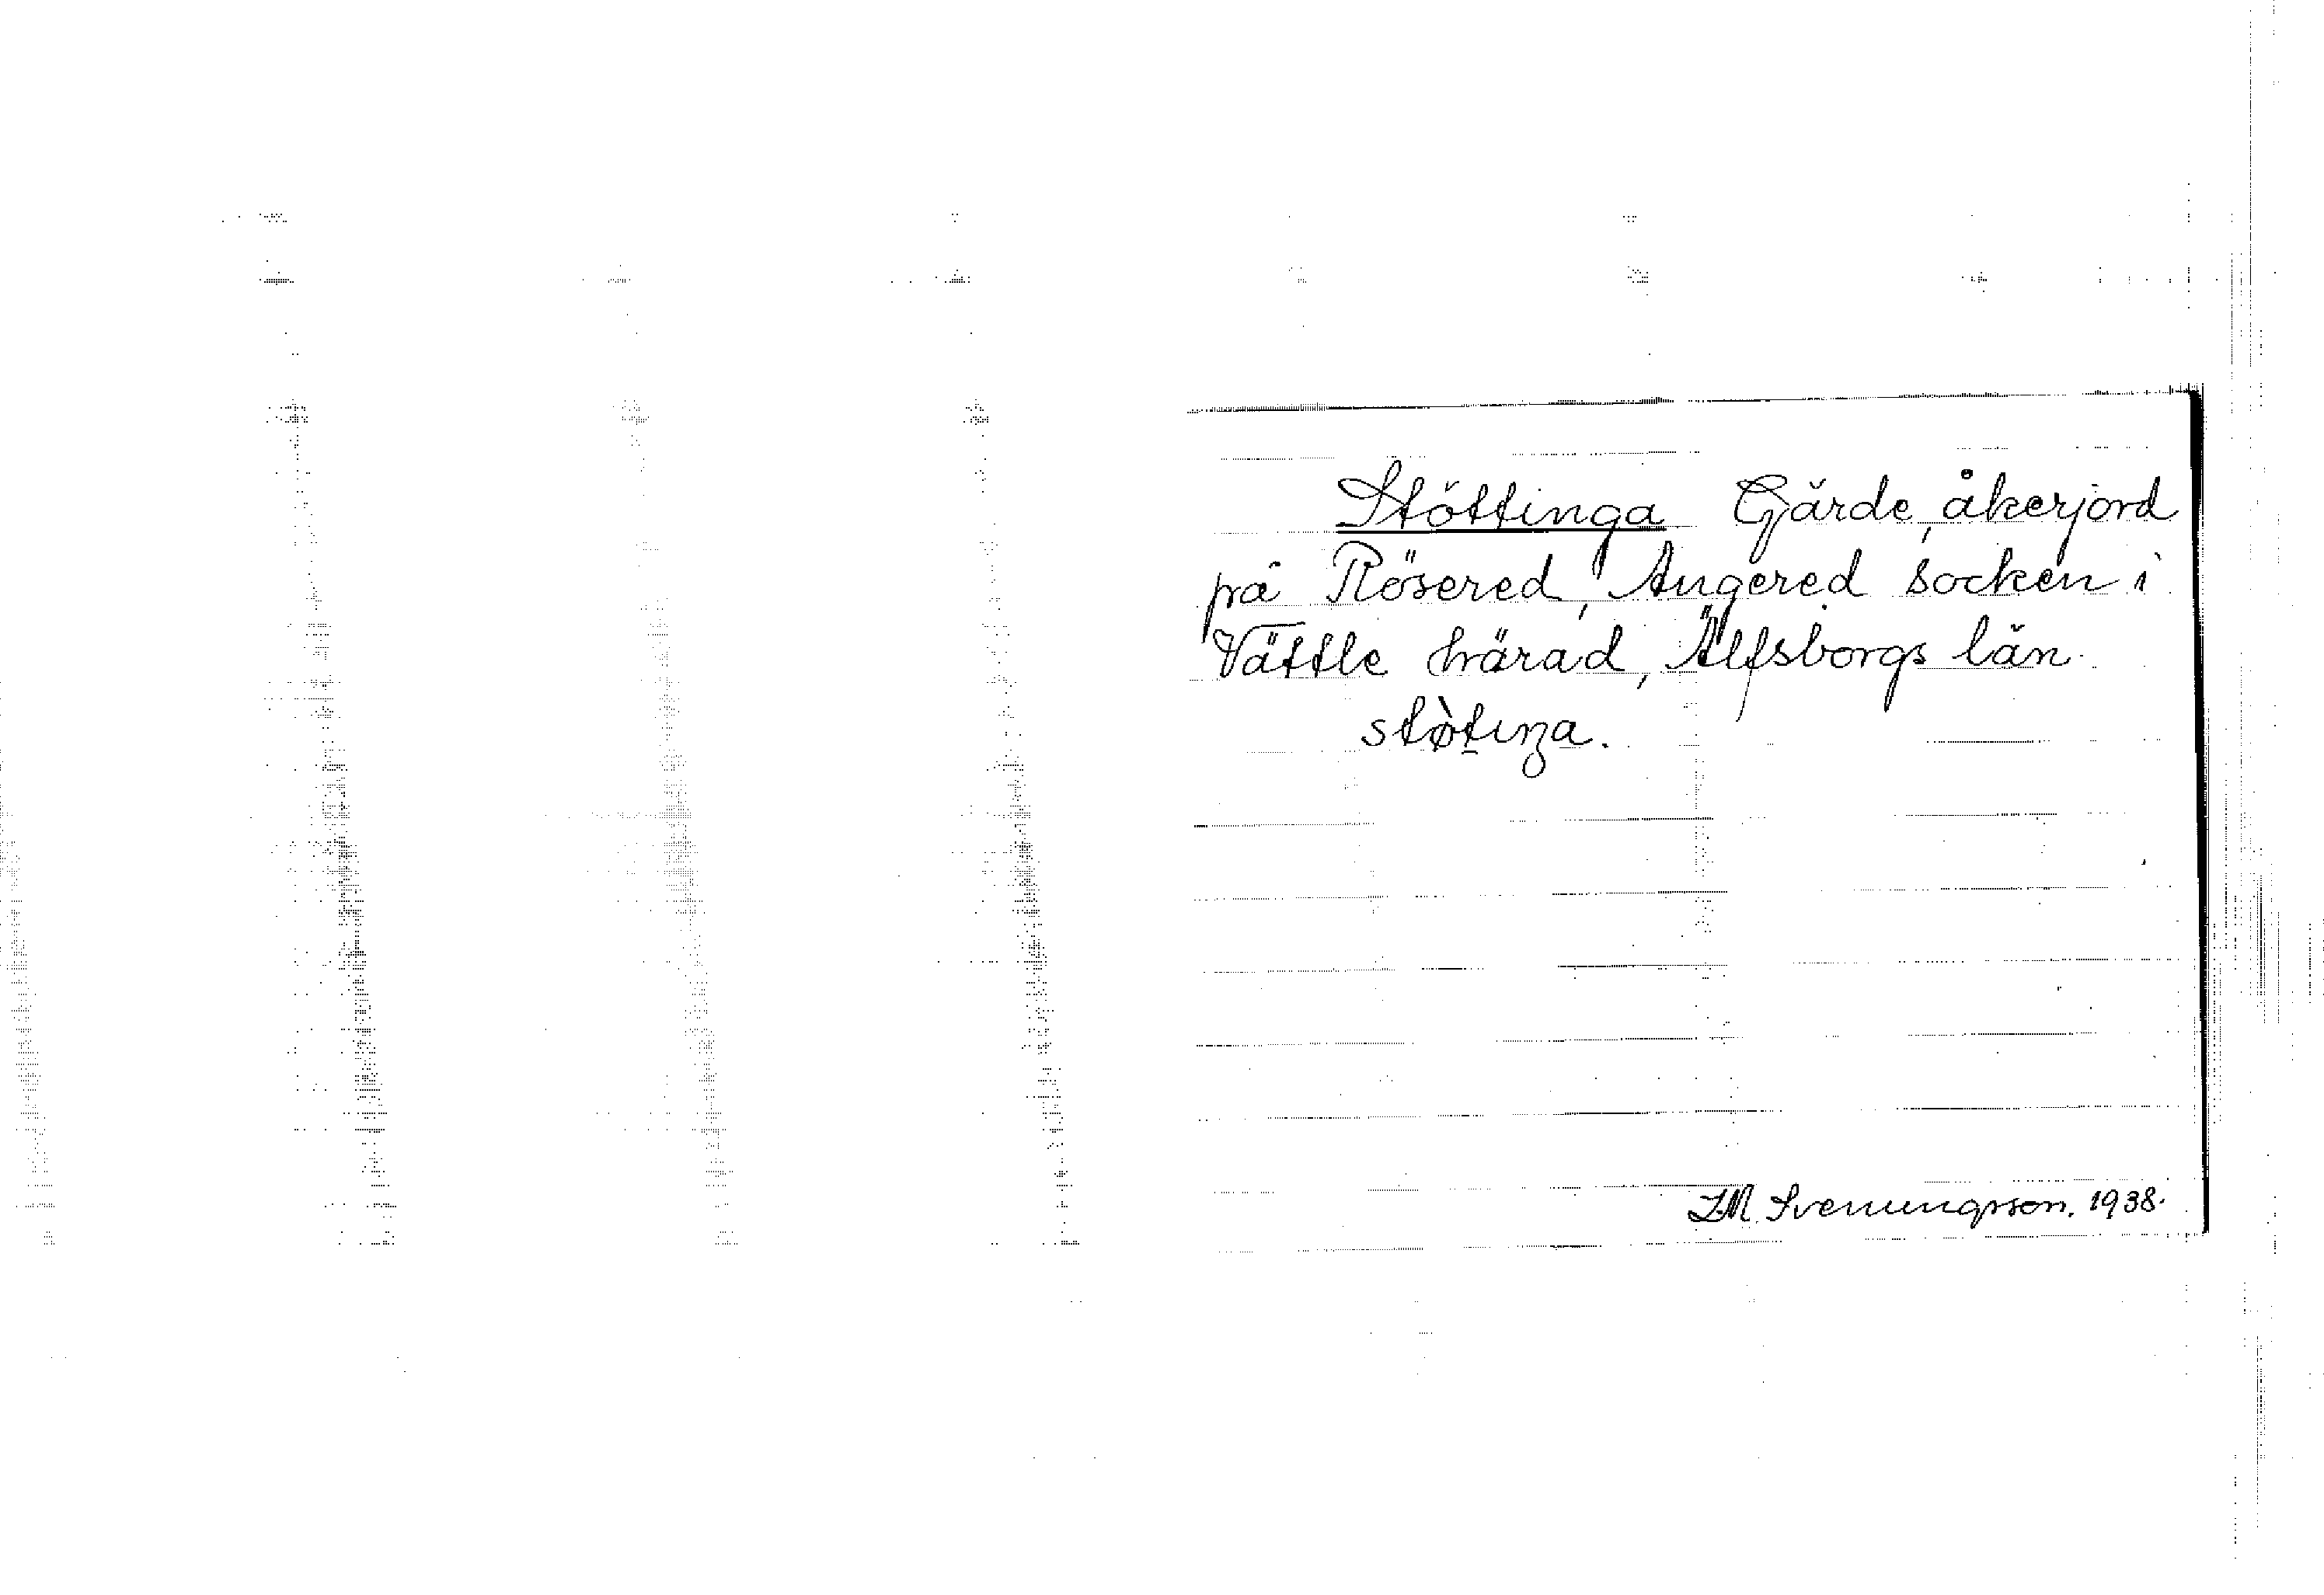 Stöttinga Gärde, åkerjord
på Rösered, Angered socken i
Vättle härad, Älfsborgs län.
stø̀tiŋa.
J.M. Svenungsson. 1938.